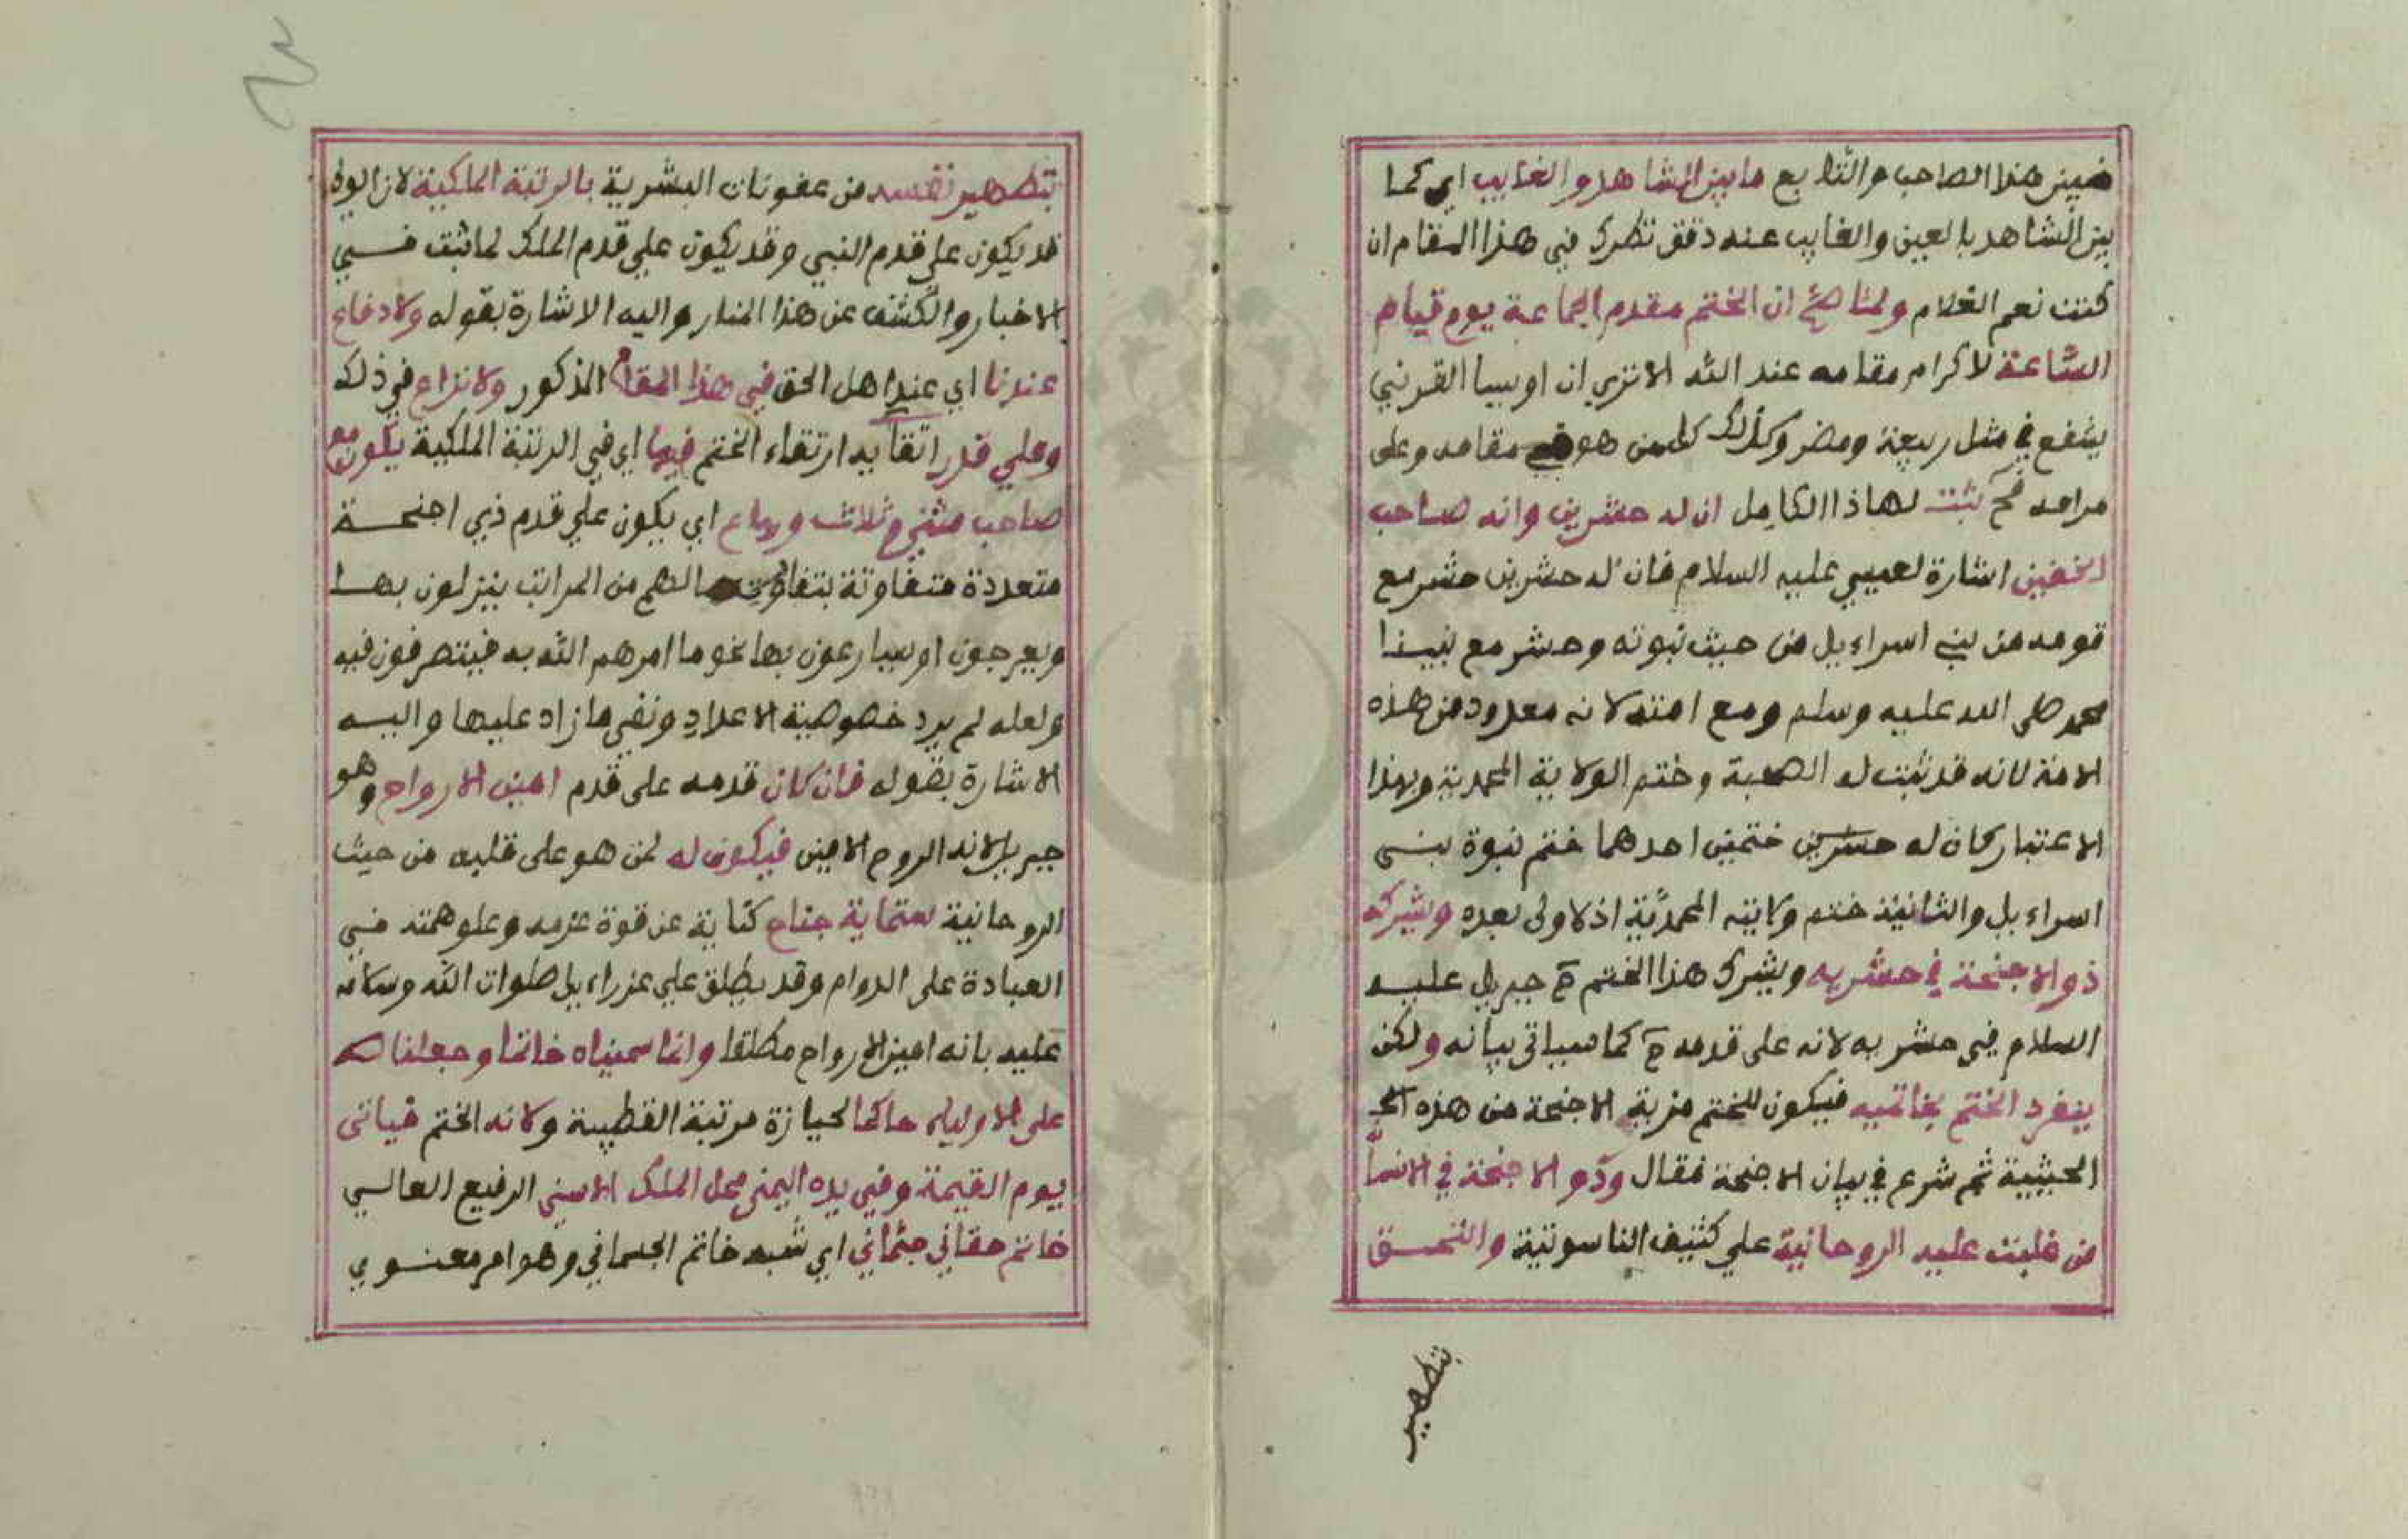 فبين هذا الصاحب والتابع ما بين الشاهد والغايب اي كما
بين الشاهد بالعين والغايب عنه دقق نظرك في هذا المقام ان
كنت نعم الغلام ولما صح ان الختم مقدم الجماعة يوم قيام
الساعة لاكرام مقامه عند الله الا تري ان اويسا القرني
يشفع في مثل ربيعة ومضر وكذلك كل من هو في مقامه وعلى
مرامه ثبت لهاذا الكامل ان له حشرين وانه صاحب
الختمين اشارة لعيسي عليه السلام فان له حشرين حشر مع
قومه من بني اسراءيل من حيث نبوته وحشر مع نبينا
محمد صلى الله عليه وسلم ومع امته لانه معدود من هذه
الامة لانه قد ثبت له الصحبة وختم الولاية المحمدية وبهذا
الاعتبار كان له حشرين ختمين احدهما ختم نبوة بنى
اسراءيل والثانية ختم ولايته المحمدية اذ لا ولى بعده ويشركه
ذو الاجنحة في حشريه ويشرك هذا الختم ح جبريل عليه
السلام في حشريه لانه على قدمه ح كما سياتى بيانه ولكن
ينفرد الختم بخاتميه فيكون للختم مزية الاجنحة من هذه
الحيثية ثم شرع في بيان الاجنحة فقال وذو الاجنحة في الانما
من غلبت عليه الروحانية علي كثيف الناسوتية والتحق
بتطهير
بتطهير نفسه من عفونات البشرية بالرتبة الملكية لان الولي
قد يكون علي قدم النبي وقد يكون علي قدم الملك لما ثبت في
الاخبار والكشف عن هذا المنار واليه الاشارة بقوله ولا دفاع
عندنا اي عند اهل الحق في هذا المقام المذكور ولا نزاع في ذلك
وعلي قدر اتقايه ارتقاء الختم فيها اي في الرتبة الملكية يكون مع
صاحب مثني وثلاث ورباع اي يكون علي قدم ذي اجنحة
متعددة متفاوتة بتفاوت ما لهم من المراتب ينزلون بها
ويعرجون او يسارعون بها نحو ما امرهم الله به فيتصرفون فيه
ولعله لم يرد خصوصية الاعداد ونفي ما زاد عليها واليه
الاشارة بقوله فان كان قدمه على قدم امين الارواح وهو
جبريل لانه الروح الامين فيكون له لمن هو على قلبه من حيث
الروحانية ستماية جناح كناية عن قوة عزمه وعلو همته في
العبادة على الدوام وقد يطلق علي عزراءيل صلوات الله وسلامه
عليه بانه امين الارواح مطلقا وانما سميناه خاتما وجعلناه
على الاولياء حاكما لحيازة مرتبة القطبية ولانه الختم فياتى
يوم القيمة وفي يده اليمنى محل الملك الاسني الرفيع العالي
خاتم حقاني جثماني اي شبه خاتم الجسماني وهو امر معنوي